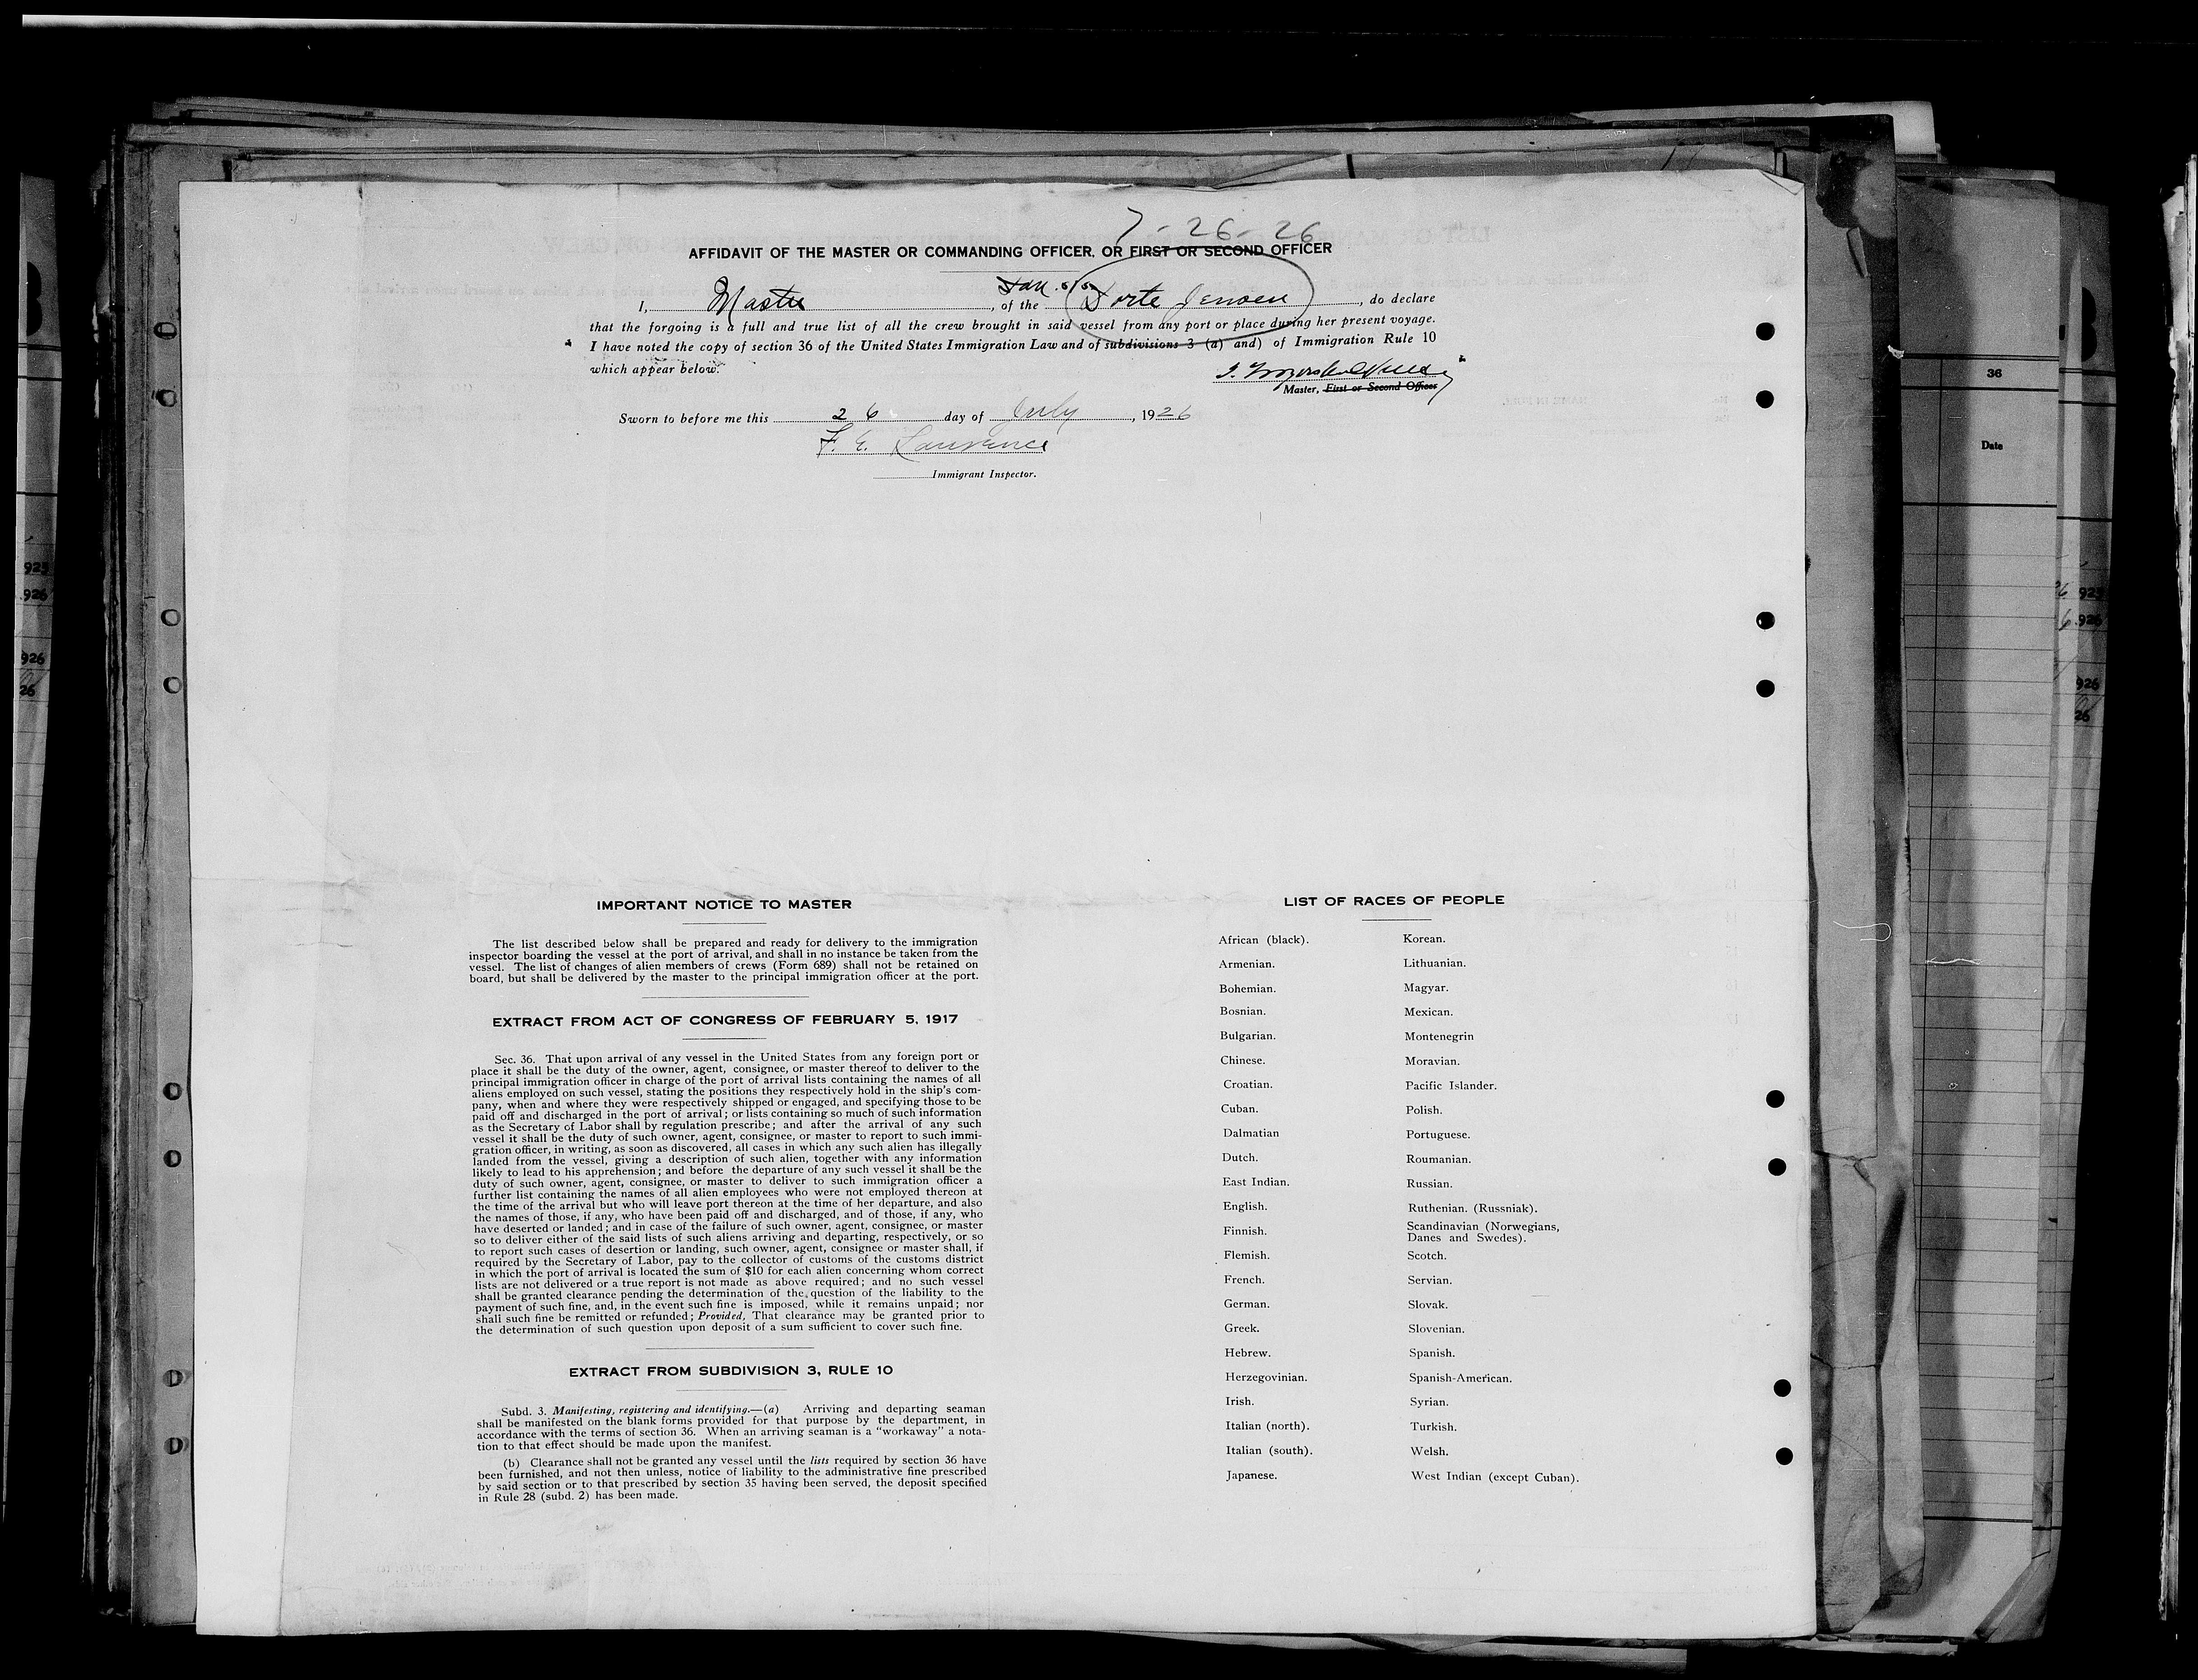 7-26-26
AFFIDAVIT OF THE MASTER OR COMMANDING OFFICER, OR FIRST OR SECOND OFFICER
I, Master, of the Dan. s/s Dorte Jensen, do declare
that the forgoing is a full and true list of all the crew brought in said vessel from any port or place during her present voyage.
I have noted the copy of section 36 of the United States Immigration Law and of subdivisions 3 (a) and) of Immigration Rule 10
which appear below.
Master, First or Second Officer
Sworn to before me this 26 day of July, 1926
F. E. Lawrence
Immigrant Inspector.
36
Date
IMPORTANT NOTICE TO MASTER
The list described below shall be prepared and ready for delivery to the immigration
inspector boarding the vessel at the port of arrival, and shall in no instance be taken from the
vessel. The list of changes of alien members of crews (Form 689) shall not be retained on
board, but shall be delivered by the master to the principal immigration officer at the port.
EXTRACT FROM ACT OF CONGRESS OF FEBRUARY 5, 1917
Sec. 36. That upon arrival of any vessel in the United States from any foreign port or
place it shall be the duty of the owner, agent, consignee, or master thereof to deliver to the
principal immigration officer in charge of the port of arrival lists containing the names of all
aliens employed on such vessel, stating the positions they respectively hold in the ship's com-
pany, when and where they were respectively shipped or engaged, and specifying those to be
paid off and discharged in the port of arrival; or lists containing so much of such information
as the Secretary of Labor shall by regulation prescribe; and after the arrival of any such
vessel it shall be the duty of such owner, agent, consignee, or master to report to such immi-
gration officer, in writing, as soon as discovered, all cases in which any such alien has illegally
landed from the vessel, giving a description of such alien, together with any information
likely to lead to his apprehension; and before the departure of any such vessel it shall be the
duty of such owner, agent, consignee, or master to deliver to such immigration officer a
further list containing the names of all alien employees who were not employed thereon at
the time of the arrival but who will leave port thereon at the time of her departure, and also
the names of those, if any, who have been paid off and discharged, and of those, if any, who
have deserted or landed; and in case of the failure of such owner, agent, consignee, or master
so to deliver either of the said lists of such aliens arriving and departing, respectively, or so
to report such cases of desertion or landing, such owner, agent, consignee or master shall, if
required by the Secretary of Labor, pay to the collector of customs of the customs district
in which the port of arrival is located the sum of $10 for each alien concerning whom correct
lists are not delivered or a true report is not made as above required; and no such vessel
shall be granted clearance pending the determination of the question of the liability to the
payment of such fine, and, in the event such fine is imposed, while it remains unpaid; nor
shall such fine be remitted or refunded; Provided, That clearance may be granted prior to
the determination of such question upon deposit of a sum sufficient to cover such fine.
EXTRACT FROM SUBDIVISION 3, RULE 10
Subd. 3. Manifesting, registering and identifying.—(a) Arriving and departing seaman
shall be manifested on the blank forms provided for that purpose by the department, in
accordance with the terms of section 36. When an arriving seaman is a "workaway" a nota-
tion to that effect should be made upon the manifest.
(b) Clearance shall not be granted any vessel until the lists required by section 36 have
been furnished, and not then unless, notice of liability to the administrative fine prescribed
by said section or to that prescribed by section 35 having been served, the deposit specified
in Rule 28 (subd. 2) has been made.
LIST OF RACES OF PEOPLE
African (black).
Armenian.
Bohemian.
Bosnian.
Bulgarian.
Chinese.
Croatian.
Cuban.
Dalmatian
Dutch.
East Indian.
English.
Finnish.
Flemish.
French.
German.
Greek.
Hebrew.
Herzegovinian.
Irish.
Italian (north).
Italian (south).
Japanese.
Korean.
Lithuanian.
Magyar.
Mexican.
Montenegrin
Moravian.
Pacific Islander.
Polish.
Portuguese.
Roumanian.
Russian.
Ruthenian. (Russniak).
Scandinavian (Norwegians,
Danes and Swedes).
Scotch.
Servian.
Slovak.
Slovenian.
Spanish.
Spanish-American.
Syrian.
Turkish.
Welsh.
West Indian (except Cuban).